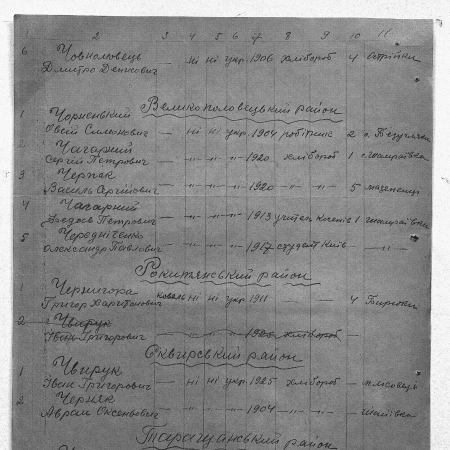 1 2 3 4 5 6 7 8 9 10 11
6 Човноловець
Дмитро Денисович — ні ні укр. 1906 хлібороб 4 Острійки
Великополовецький район
1 Чорненький
Овсій Симонович — ні ні укр. 1904 робітник 2
2 Чагарний
Сергій Петрович — " " " 1920 хлібороб 1
3 Черпак
Василь Сергійович — " " " 1920 — " — 5
4 Чагарний
Федось Петрович — " " " 1913 учитель 1
5 Чередніченко
Олександр Павлович — " " " 1917 студент Київ — — " —
Рокитянський район
1 Чернигора
Григор Харитонович ні ні укр 1911 — 4
2 Чвирук
Іван Григорович 1925 хлібороб —
Сквирський район
1 Чвирук
Іван Григорович — ні ні укр. 1925 хлібороб —
2 Черняк
Аврам Оксентович — " " " 1904 — " — —
Таращанський район